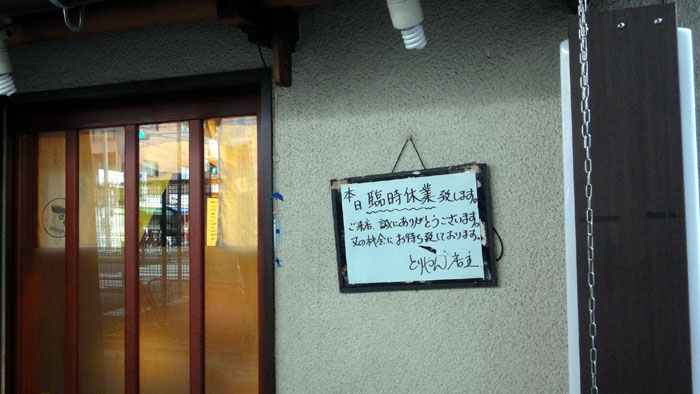 本日臨時休業致します。
ご来店、誠にありがとうございます。
又の機会にお待ち致しております。
店主